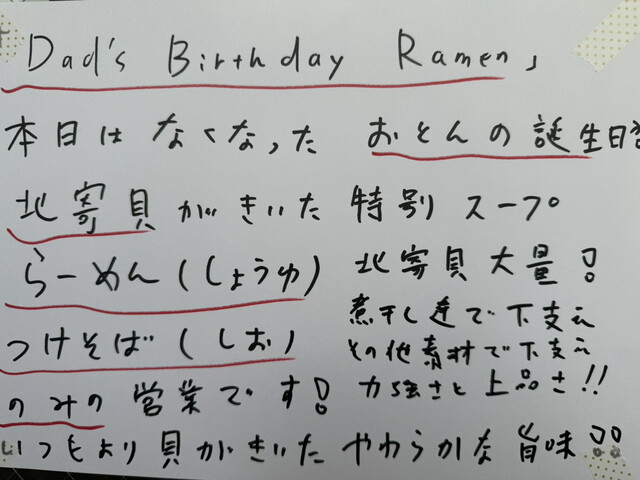 Dad's Birthday Ramen」
本日はなくなったおとんの誕生日
北寄貝がきいた特別スープ
らーめん(しょうゆ) 北寄貝大量!
煮干し達で下支え
つけそば(しお) その他素材で下支え
のみの営業です! 力強さと上品さ!!
いつもより貝がきいたやわらかな旨味!!